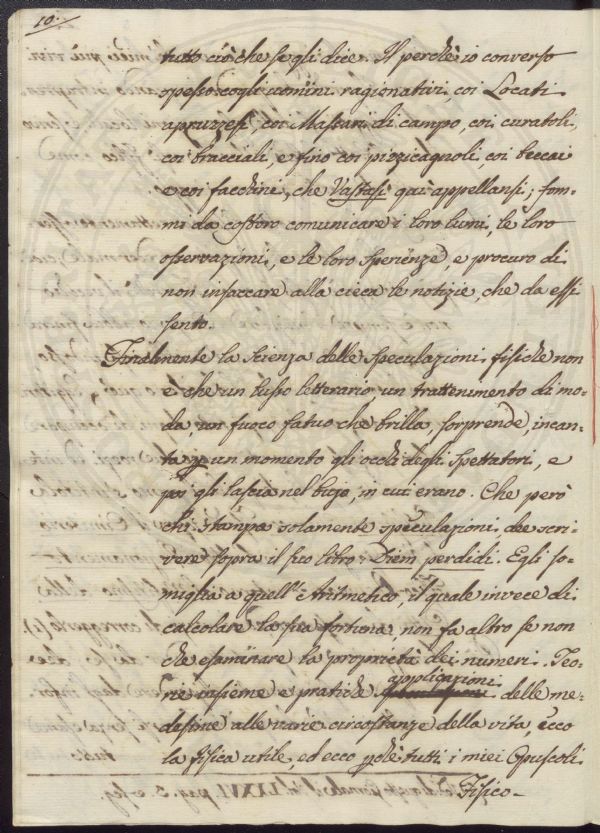 10.
tutto ciò che se gli dice. Il perchè io converso
spesso cogli uomini ragionativi coi Locati
apruzzesi, coi Massari di campo, coi curatoli,
coi bracciali, e fino coi pizzicagnoli, coi beccai
e coi facchini, che Vastasi qui appellansi; fom-
mi da costoro comunicare i loro lumi, le loro
osservazioni, e le loro sperienze, e procuro di
non insaccare alla cieca le notizie, che da essi
sento.
Finalmente la scienza delle speculazioni fisiche non
è che un lusso letterario, un trattenimento di mo-
da, un fuoco fatuo che brilla, sorprende, incan-
ta p un momento gli occhi degli spettatori, e
poi gli lascia nel bujo, in cui erano. Che però
chi stampa solamente speculazioni, dee scri-
vere sopra il suo libro: Diem perdidi. Egli so-
miglia a quell'Aritmetico, il quale invece di
calcolare la sua fortuna, non fa altro se non
che esaminare la proprietà dei numeri. Teo-
rie insieme e pratiche applicazioni delle me-
desime alle varie circostanze della vita, ecco
la fisica utile, ed ecco pchè tutti i miei Opuscoli
Fisico-